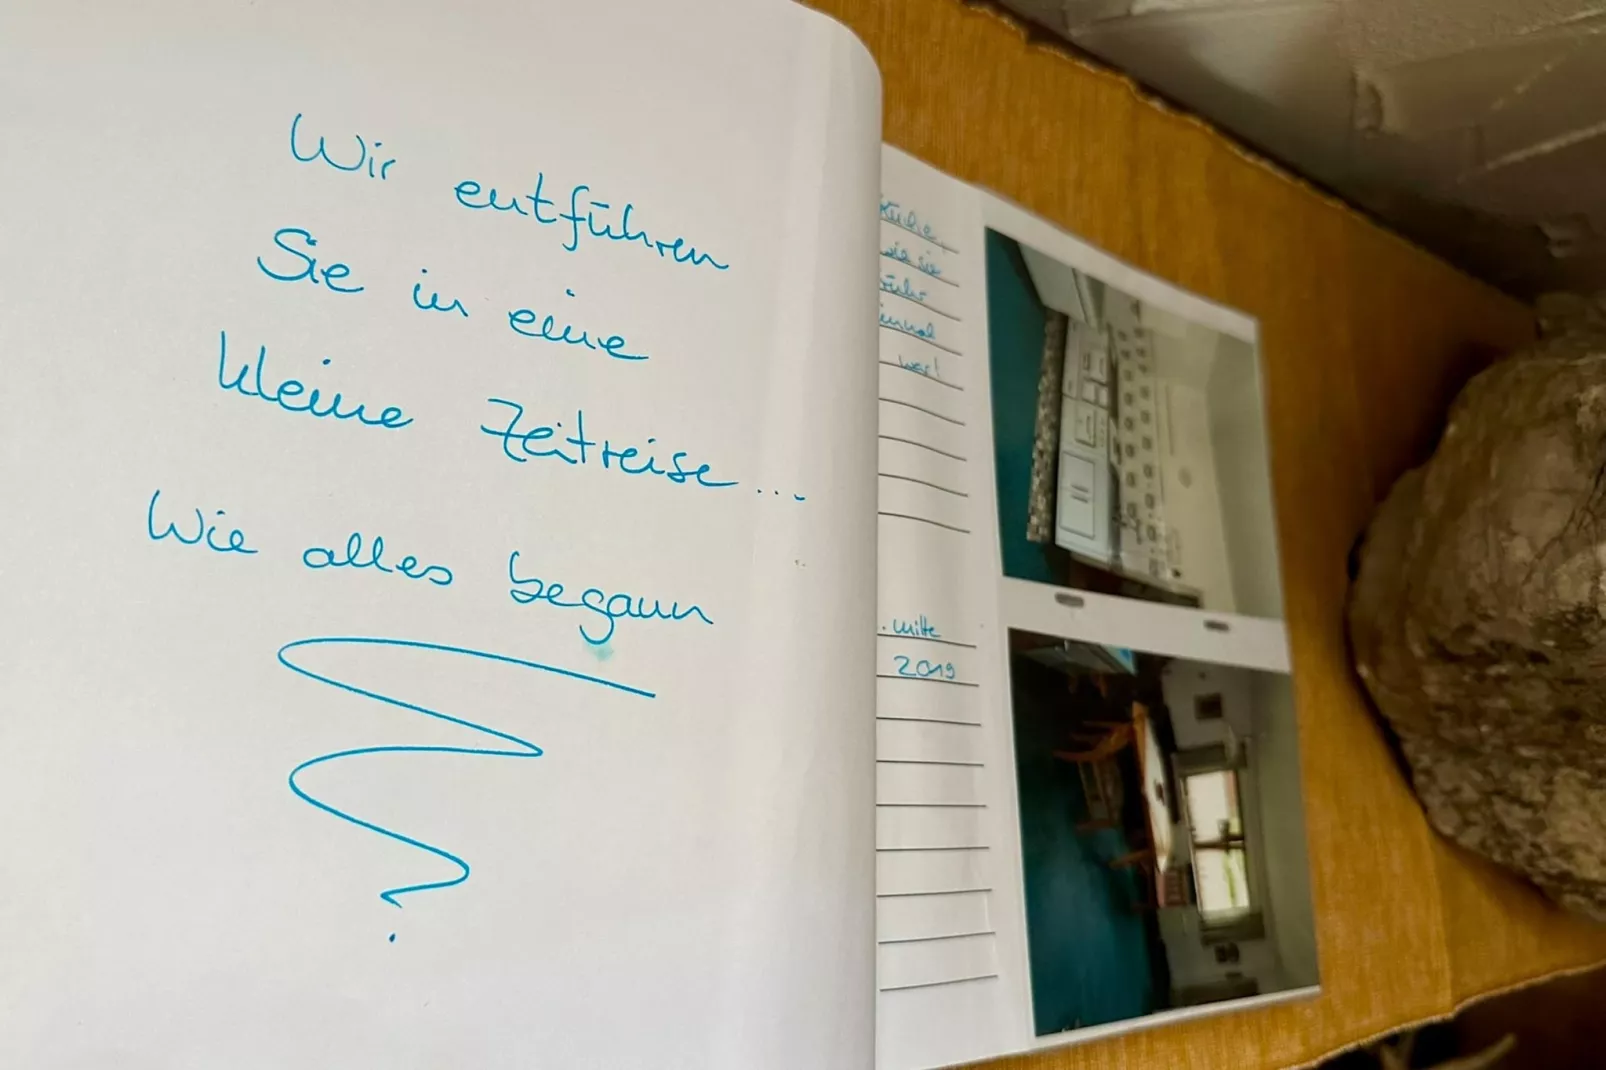 Wir entführen
Sie in eine
kleine Zeitreise...
Wie alles begann
Küche,
wie sie
früher
einmal
war!
. mitte
2019